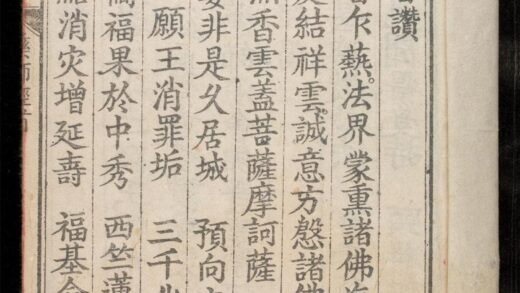 讚
乍爇。法界蒙熏諸佛
結祥雲。誠意方慇諸佛
香雲蓋菩薩摩訶薩
非是久居城　預向
願王消罪垢　三千
福果於中秀　西竺蓮
消灾增延壽　福基
師經